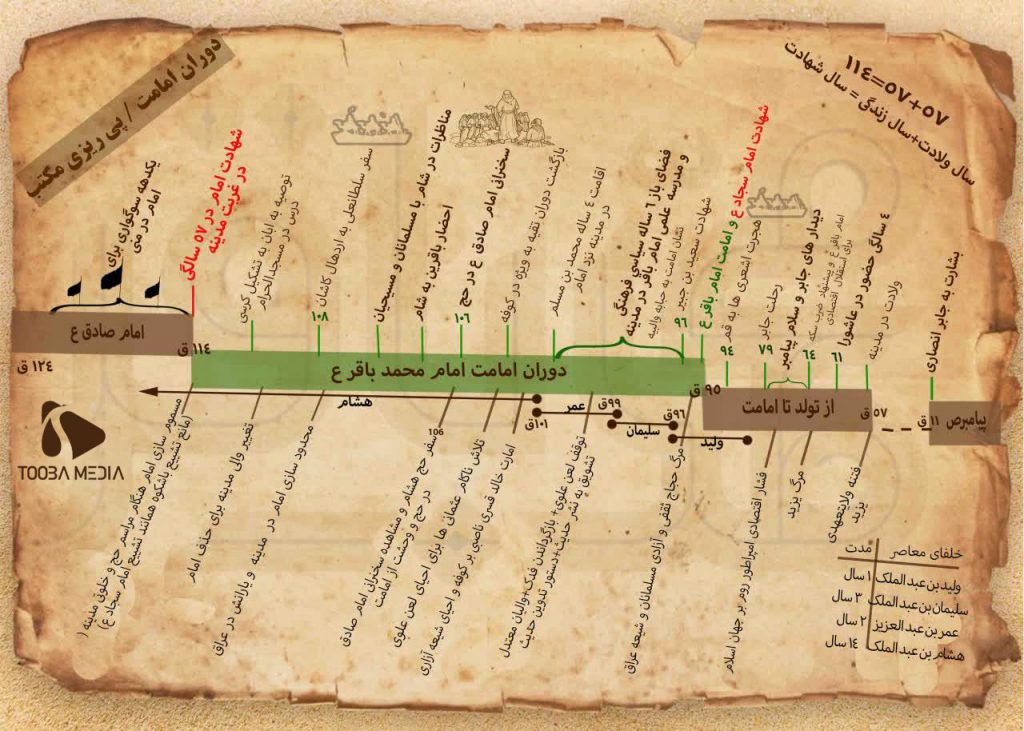 دوران امامت / پی ریزی مکتب
۵۷+۵۷=۱۱۴
سال ولادت+سال زندگی = سال شهادت
بشارت به جابر انصاری
ولادت در مدینه
۴ سالگی حضور در عاشورا
۶۱
امام باقر ع و پیشنهاد ضرب سکه
برای استقلال اقتصادی
دیدار های جابر و سلام پیامبر
۶۴
رحلت جابر
۷۹
هجرت اشعری ها به قم
۹۴
شهادت امام سجاد ع و امامت امام باقر ع
شهادت سعید بن جبیر
۹۶
نشان امامت به حبابه والبیه
فضای باز ٦ ساله سیاسی فرهنگی
و مدرسه علمی امام باقر در مدینه
اقامت ٤ ساله محمد بن مسلم
در مدینه نزد امام
بازگشت دوران تقیه به ویژه در کوفه
سخنرانی امام صادق ع در حج
۱۰۶
احضار باقرین به شام
مناظرات در شام با مسلمانان و مسیحیان
سفر سلطانعلی به اردهال کاشان
۱۰۸
توصیه به ابان به تشکیل کرسی
درس در مسجدالحرام
شهادت امام در ۵۷ سالگی
در غربت مدینه
یکدهه سوگواری برای
امام در منی
پیامبرص
۱۱ ق
۵۷ ق
از تولد تا امامت
۹۵ ق
دوران امامت امام محمد باقر ع
۱۱۴ ق
امام صادق ع
۱۲۴ ق
ولید
۹۶ق
سلیمان
۹۹ق
عمر
۱۰۱ق
هشام
فتنه ولایتعهدی
یزید
مرگ یزید
فشار اقتصادی امپراطور روم بر جهان اسلام
مرگ حجاج ثقفی و آزادی مسلمانان و شیعه عراق
توقف لعن علوی+ بازگرداندن فدک+والیان معتدل
تشویق به نشر حدیث+دستور تدوین حدیث
امارت خالد قسری ناصبی بر کوفه و احیای شیعه آزاری
تلاش ناکام عثمانی ها برای احیای لعن علوی
106
سفر حج هشام و مشاهده سخنرانی امام صادق
در حج و وحشت از امامت
محدود سازی امام در مدینه و یارانش در عراق
تغییر والی مدینه برای حذف امام
مسموم سازی امام هنگام مراسم حج و خلوتی مدینه (
(مانع تشییع باشکوه همانند تشییع امام سجاد ع)
خلفای معاصر مدت
ولیدبن عبدالملک ۱ سال
سلیمان بن عبدالملک ۳ سال
عمربن عبدالعزیز ۲ سال
هشام بن عبدالملک ۱۴ سال
TOOBA MEDIA